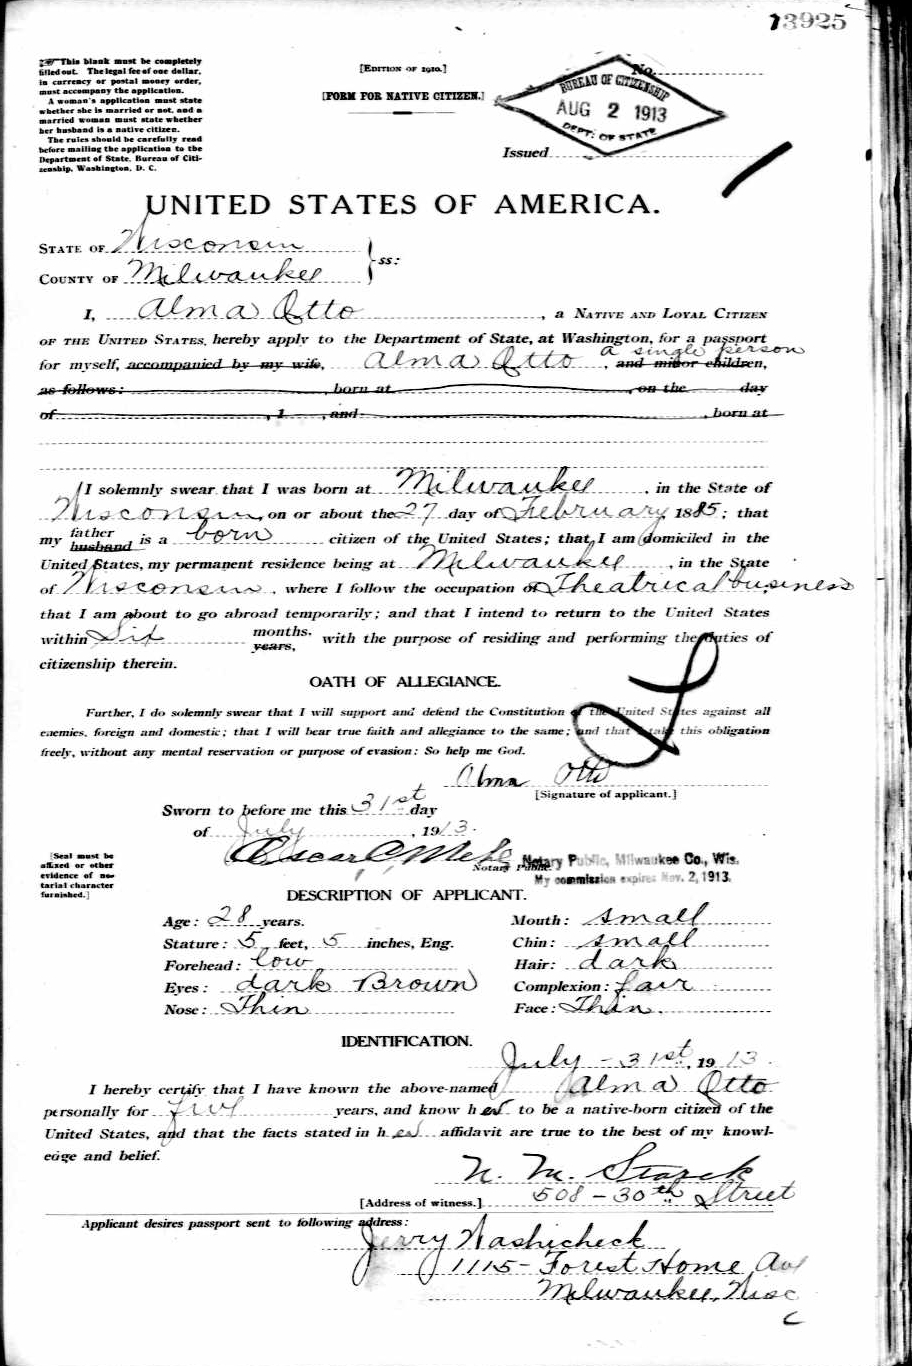 13925
This blank must be completely
filled out. The legal fee of one dollar,
in currency or postal money order,
must accompany the application.
A woman's application must state
whether she is married or not, and a
married woman must state whether
her husband is a native citizen.
The rules should be carefully read
before mailing the application to the
Department of State, Bureau of Citi-
zenship, Washington, D. C.
[EDITION OF 1910.]
[FORM FOR NATIVE CITIZEN.]
No.
BUREAU OF CITIZENSHIP
AUG 2 1913
DEPT. OF STATE
Issued
UNITED STATES OF AMERICA.
STATE OF Wisconsin
COUNTY OF Milwaukee
ss:
I, Alma Otto, a NATIVE AND LOYAL CITIZEN
OF THE UNITED STATES, hereby apply to the Department of State, at Washington, for a passport
a single person
for myself, accompanied by my wife, Alma Otto, and minor children,
as follows: born at, on the day
of, 1, and, born at
I solemnly swear that I was born at Milwaukee, in the State of
Wisconsin, on or about the 27 day of February, 1885; that
my father husband is a born citizen of the United States; that I am domiciled in the
United States, my permanent residence being at Milwaukee, in the State
of Wisconsin, where I follow the occupation of Theatrical business
that I am about to go abroad temporarily; and that I intend to return to the United States
within Six months. years, with the purpose of residing and performing the duties of
citizenship therein.
OATH OF ALLEGIANCE.
Further, I do solemnly swear that I will support and defend the Constitution of the United States against all
enemies, foreign and domestic; that I will bear true faith and allegiance to the same; and that I take this obligation
freely, without any mental reservation or purpose of evasion: So help me God.
Alma Otto
[Signature of applicant.]
Sworn to before me this 31st day
of July, 1913.
[Seal must be
affixed or other
evidence of no-
tarial character
furnished.]
Oscar
Notary Public.
Notary Public, Milwaukee Co., Wis.
My commission expires Nov. 2, 1913.
DESCRIPTION OF APPLICANT.
Age: 28 years. Mouth: small
Stature: 5 feet, 5 inches, Eng. Chin: small
Forehead: low Hair: dark
Eyes: dark Brown Complexion: fair
Nose: Thin Face: Thin.
IDENTIFICATION.
July - 31st, 1913.
I hereby certify that I have known the above-named Alma Otto
personally for five years, and know her to be a native-born citizen of the
United States, and that the facts stated in her affidavit are true to the best of my knowl-
edge and belief.
N. M. Starck
[Address of witness.] 508 - 30th Street
Applicant desires passport sent to following address:
Jerry Washicheck
1115 - Forest Home Ave
Milwaukee, Wisc